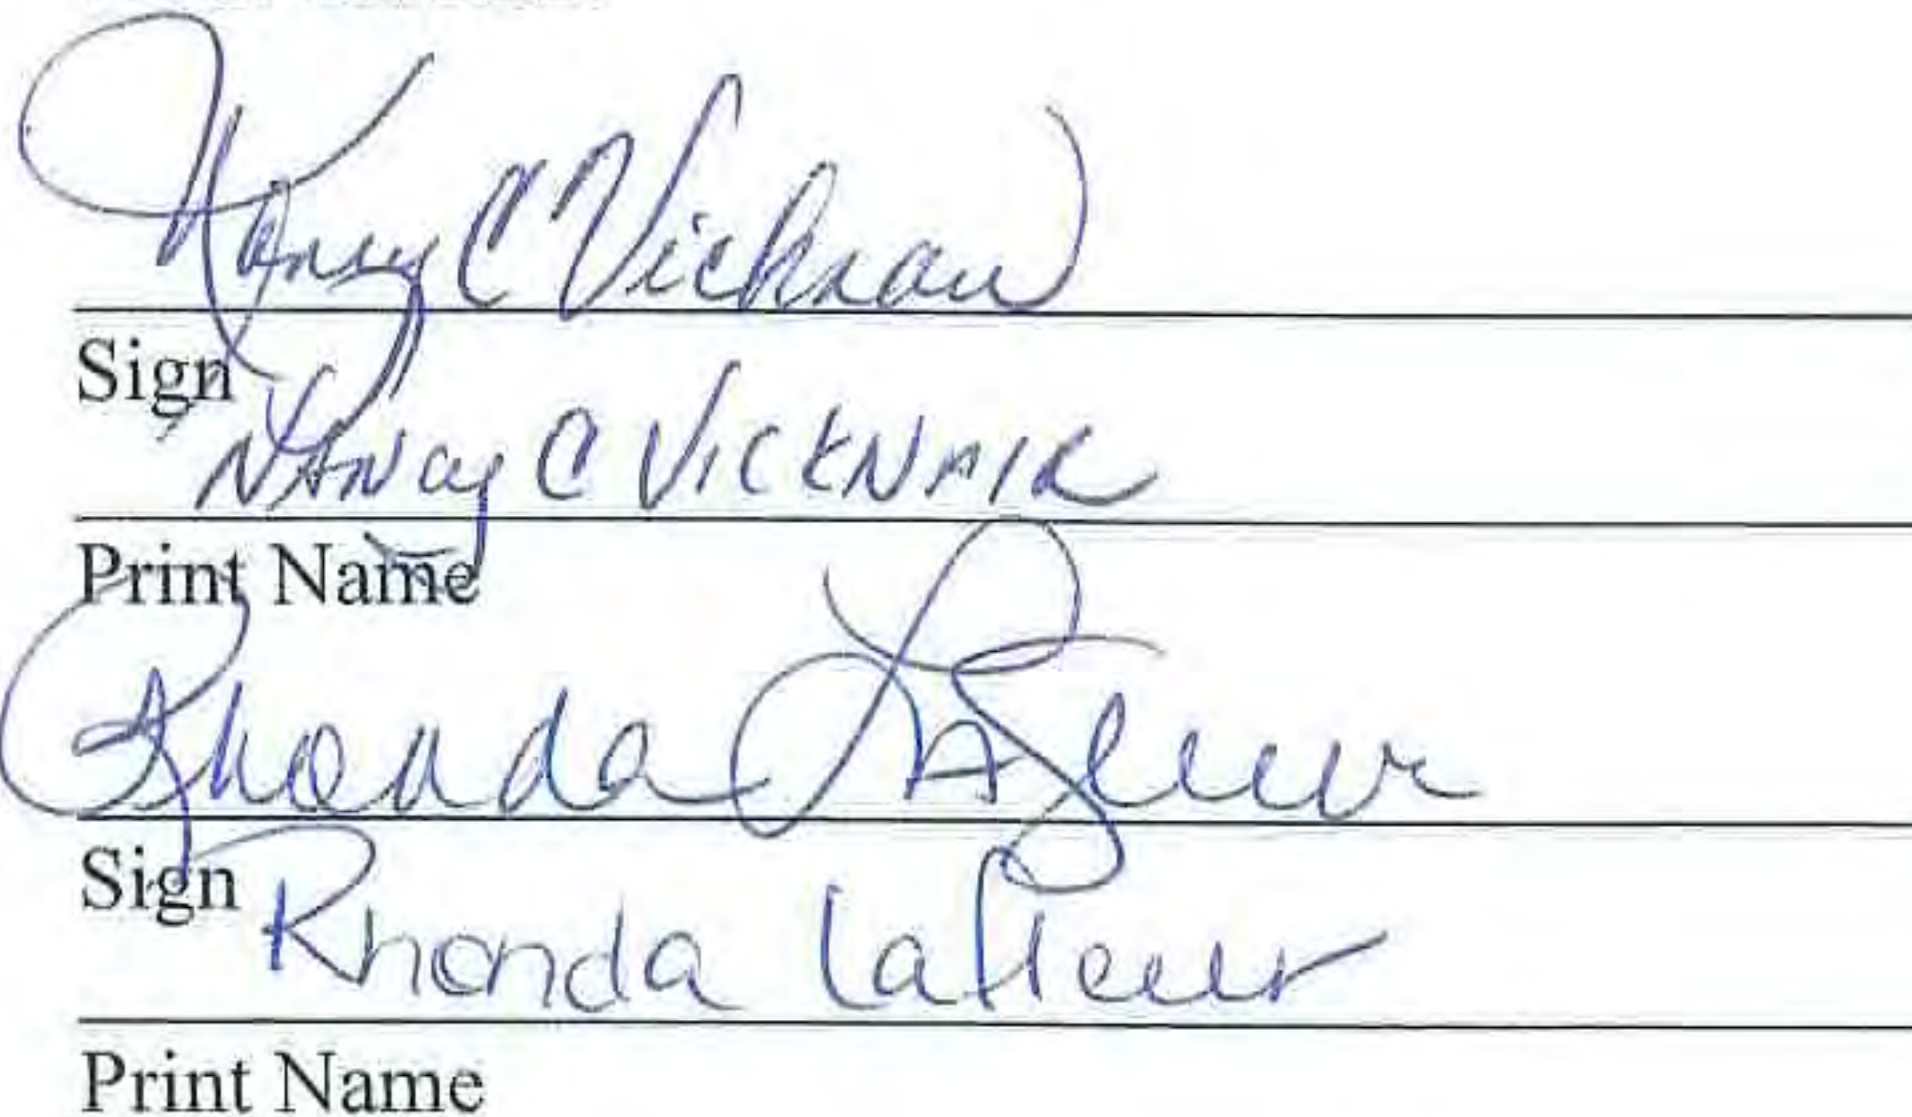 Nancy C Vicknair
Sign
NANcy C VICKNAIR
Print Name
Rhonda LaFleur
Sign
Rhonda LaFleur
Print Name